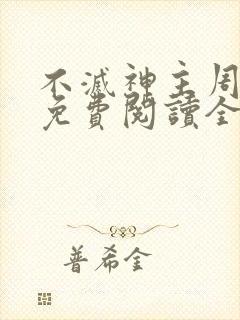 不滅神主周
免費閱讀全
普希金